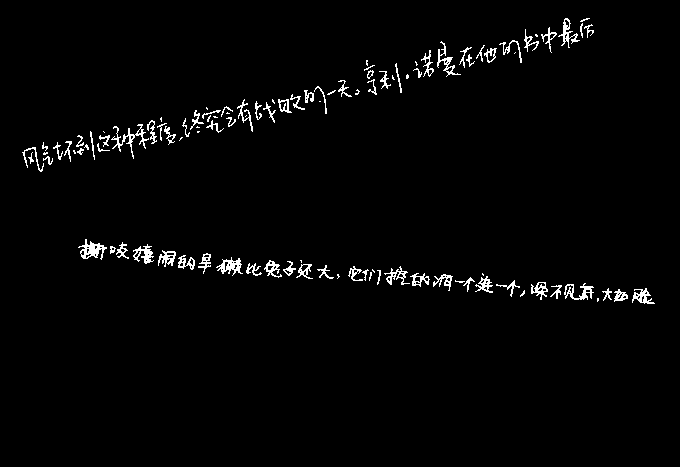 风气坏到这种程度,终究会有战败的一天。亨利·诺曼在他的书中最后
撕咬嬉闹的旱獭比兔子还大,它们挖的洞一个连一个,深不见底,大如脸